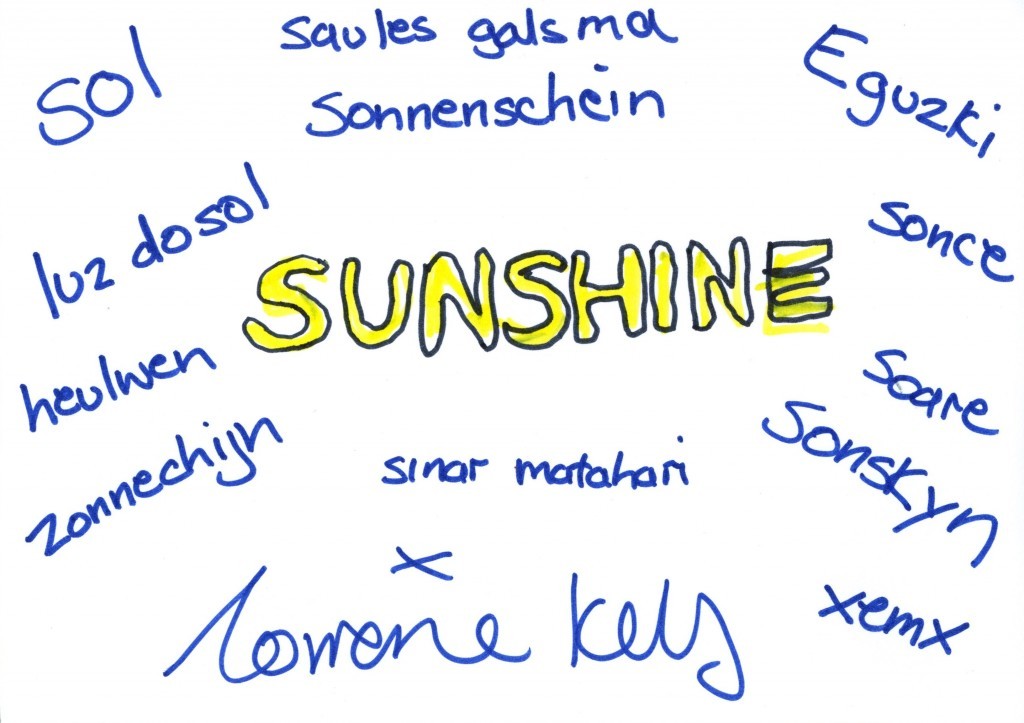 sol
saules galsma
Eguzki
Sonnenschein
luz do sol
sonce
SUNSHINE
heulwen
soare
zonnechijn
sinar matahari
Sonskyn
x
xemx
Lorraine Kelly